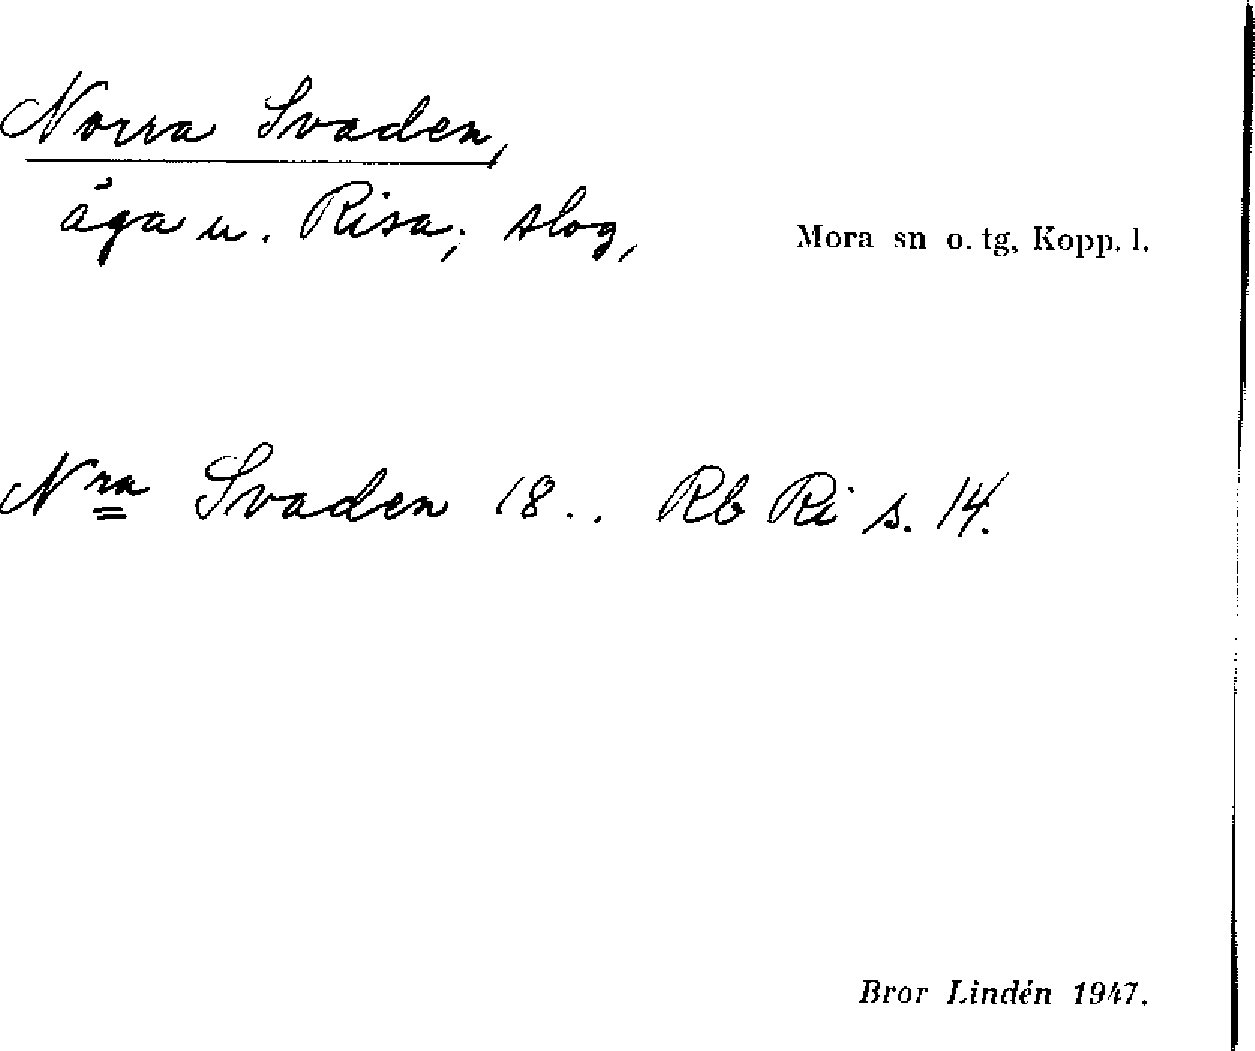 Norra Svaden,
äga u. Risa; slog,
Mora sn o. tg, Kopp. l.
Nra Svaden 18.. Rb Ri s. 14.
Bror Lindén 1947.